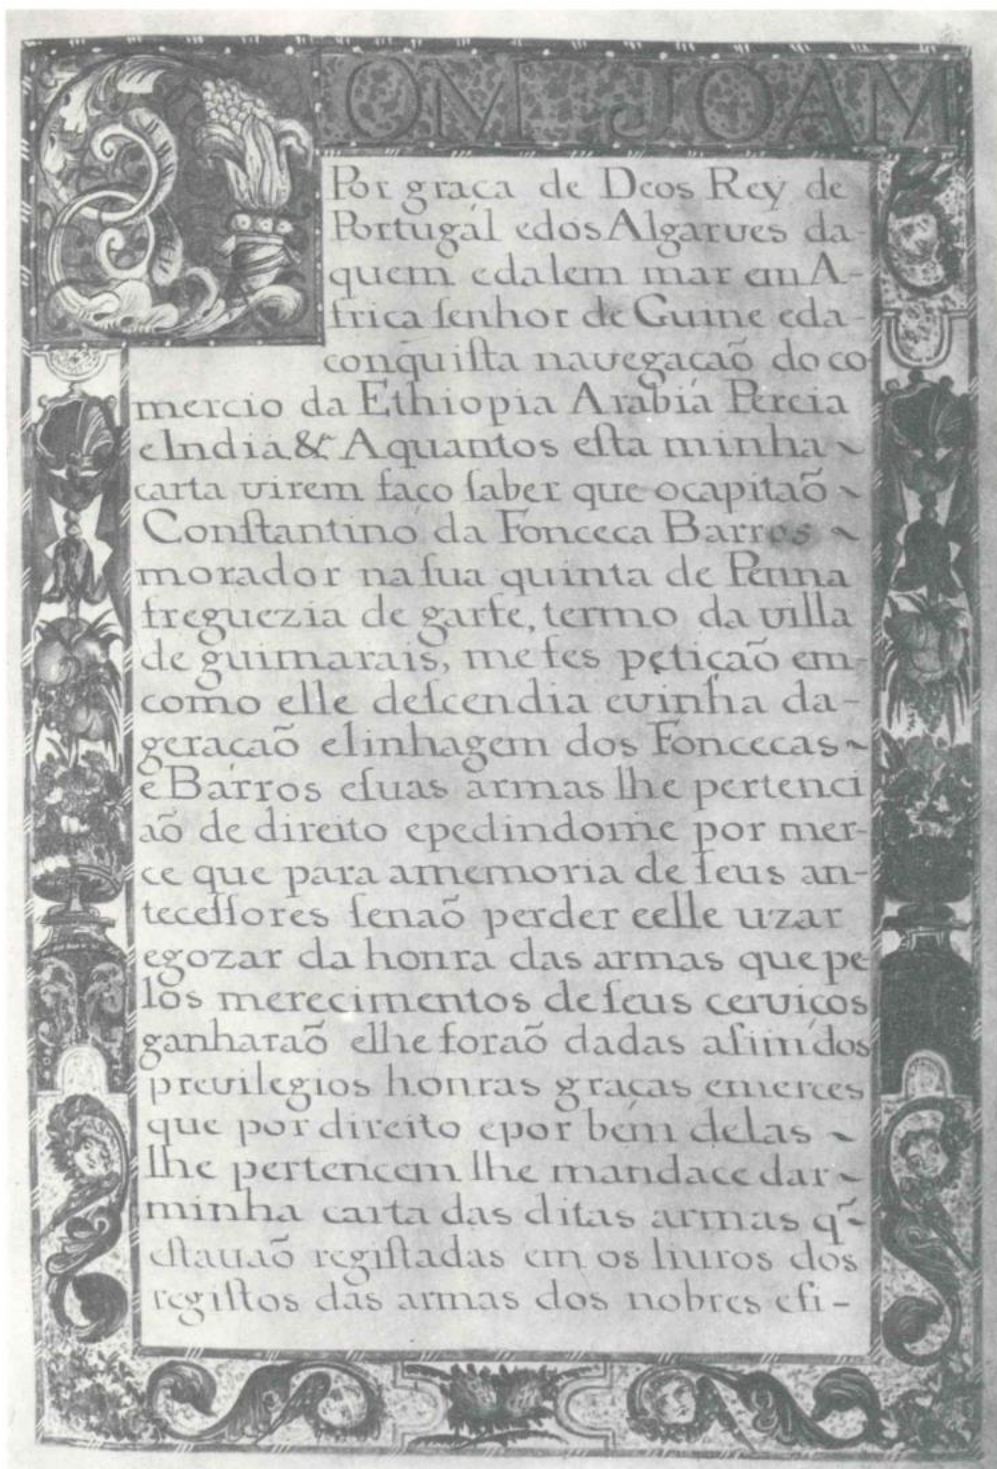 DOM JOAM
Por graça de Deos Rey de
Portugál edos Algarues da-
quem edalem mar em A-
frica ſenhor de Guine eda-
conquiſta nauegação do co
mercio da Ethiopia Arabiá Percia
e India & Aquantos eſta minha ~
carta virem faço ſaber que ocapitaõ ~
Conſtantino da Fonceca Barros ~
morador naſua quinta de Penna
freguezia de garfe, termo da villa
de guimarais, mefes petiçaõ em-
como elle deſcendia evinha da-
geraçaõ elinhagem dos Foncecas ~
e Barros eſuas armas lhe pertenci
aõ de direito epedindome por mer-
ce que para amemoria de ſeus an-
teceſſores ſenaõ perder eelle uzar
egozar da honra das armas que pe
los merecimentos deſeus ceruiços
ganharaõ elhe foraõ dadas aſim dos
preuilegios honras graças emerces
que por direito epor bem delas ~
lhe pertencem lhe mandace dar ~
minha carta das ditas armas q̃ ~
eſtauaõ regiſtadas em os liuros dos
regiſtos das armas dos nobres efi-